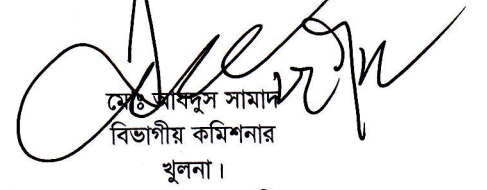 মোঃ আবদুস সামাদ
বিভাগীয় কমিশনার
খুলনা।